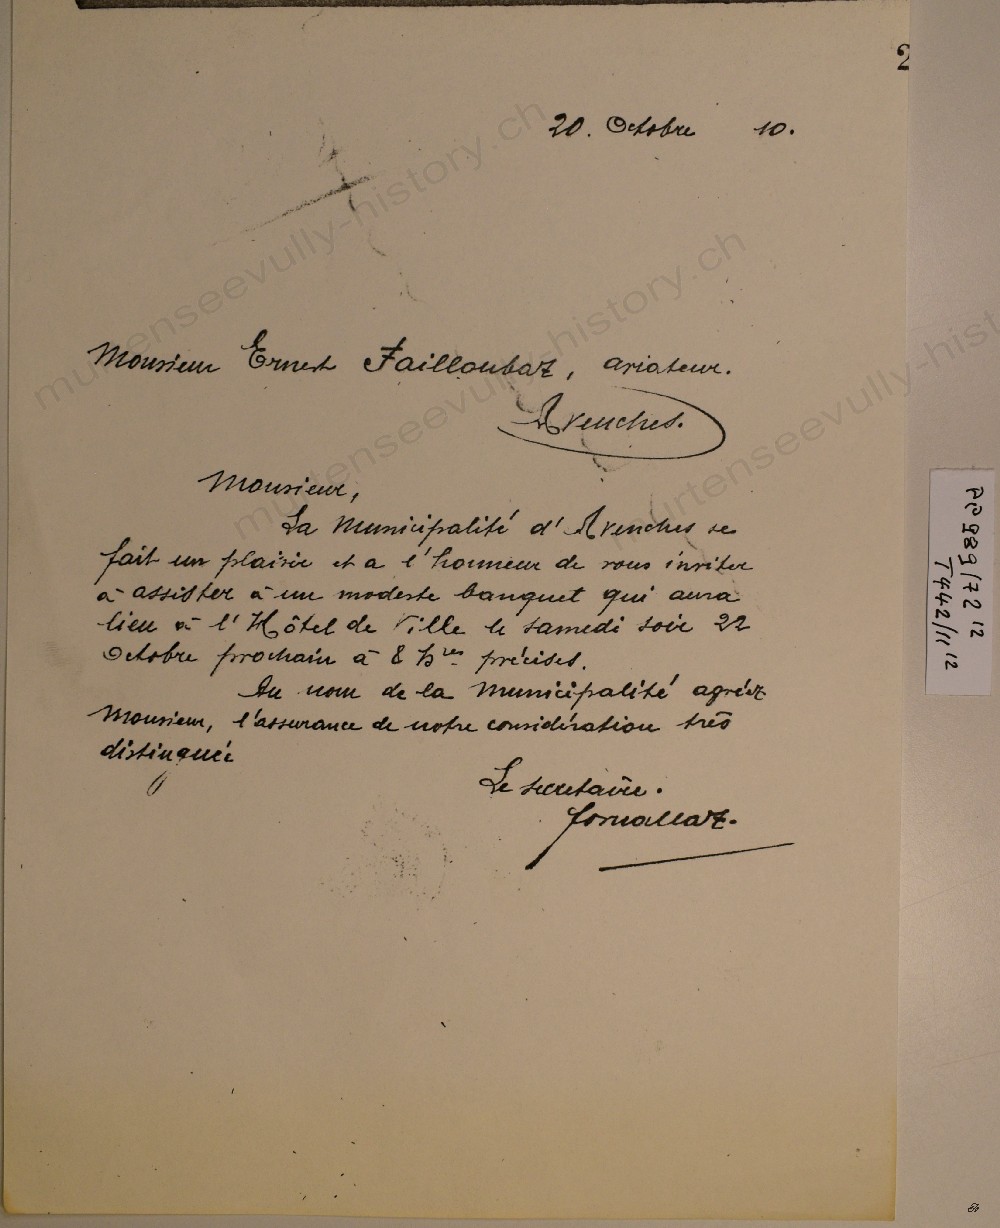 2
20. Octobre 10.
Monsieur Ernest Failloubaz, aviateur.
Avenches.
Monsieur,
La Municipalité d'Avenches se
fait un plaisir et a l'honneur de vous inviter
à assister à un modeste banquet qui aura
lieu à l'Hôtel de Ville le samedi soir 22
Octobre prochain à 8 hres précises.
Au nom de la Municipalité agréez
Monsieur, l'assurance de notre considération très
distinguée
Le secretaire.
Fornallaz.
PP 989/72 12
T 442/11 12
murtenseevully-history.ch
murtenseevully-history.ch
murtenseevully-history.ch